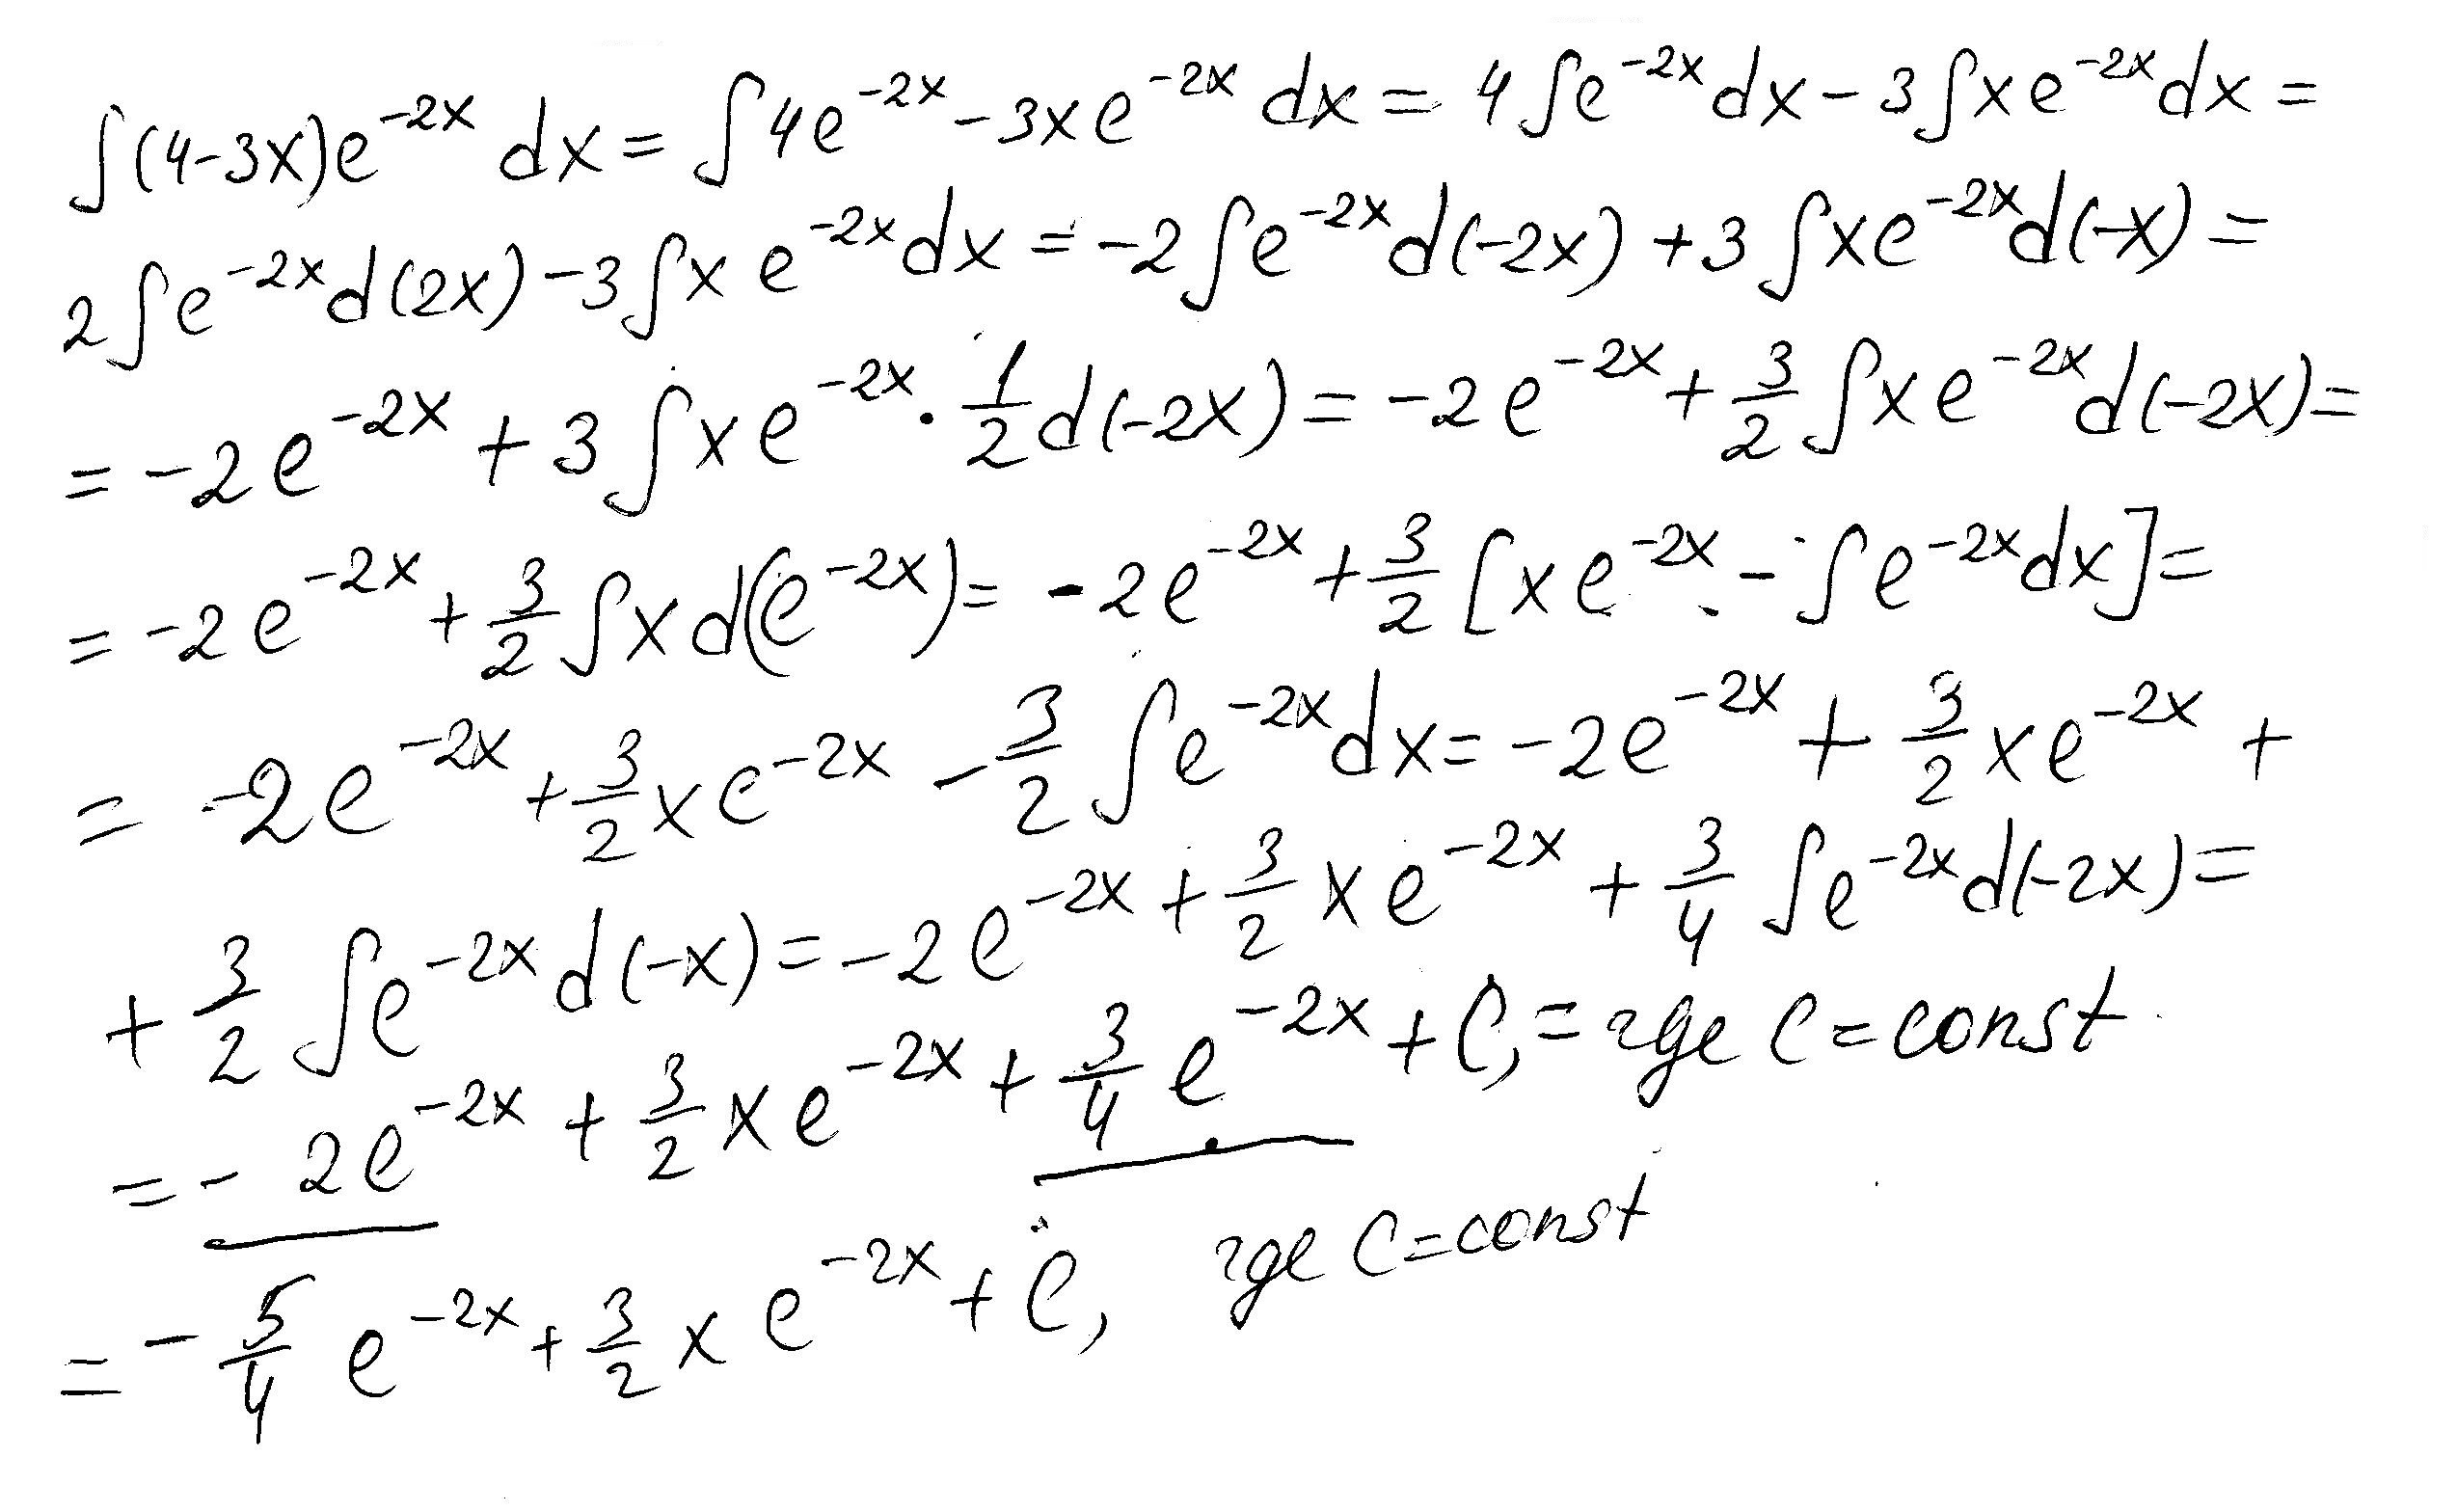 ∫(4-3x)e^{-2x} dx = ∫4e^{-2x} - 3xe^{-2x} dx = 4∫e^{-2x}dx - 3∫xe^{-2x}dx =
2∫e^{-2x}d(2x) - 3∫xe^{-2x}dx = -2∫e^{-2x}d(-2x) + 3∫xe^{-2x}d(-x) =
= -2e^{-2x} + 3∫xe^{-2x} · \frac{1}{2}d(-2x) = -2e^{-2x} + \frac{3}{2}∫xe^{-2x}d(-2x) =
= -2e^{-2x} + \frac{3}{2}∫xd(e^{-2x}) = -2e^{-2x} + \frac{3}{2}[xe^{-2x} - ∫e^{-2x}dx] =
= -2e^{-2x} + \frac{3}{2}xe^{-2x} - \frac{3}{2}∫e^{-2x}dx = -2e^{-2x} + \frac{3}{2}xe^{-2x} +
+ \frac{3}{2}∫e^{-2x}d(-x) = -2e^{-2x} + \frac{3}{2}xe^{-2x} + \frac{3}{4}∫e^{-2x}d(-2x) =
= -2e^{-2x} + \frac{3}{2}xe^{-2x} + \frac{3}{4}e^{-2x} + C, = где C = const
= -\frac{5}{4}e^{-2x} + \frac{3}{2}xe^{-2x} + C, где C = const